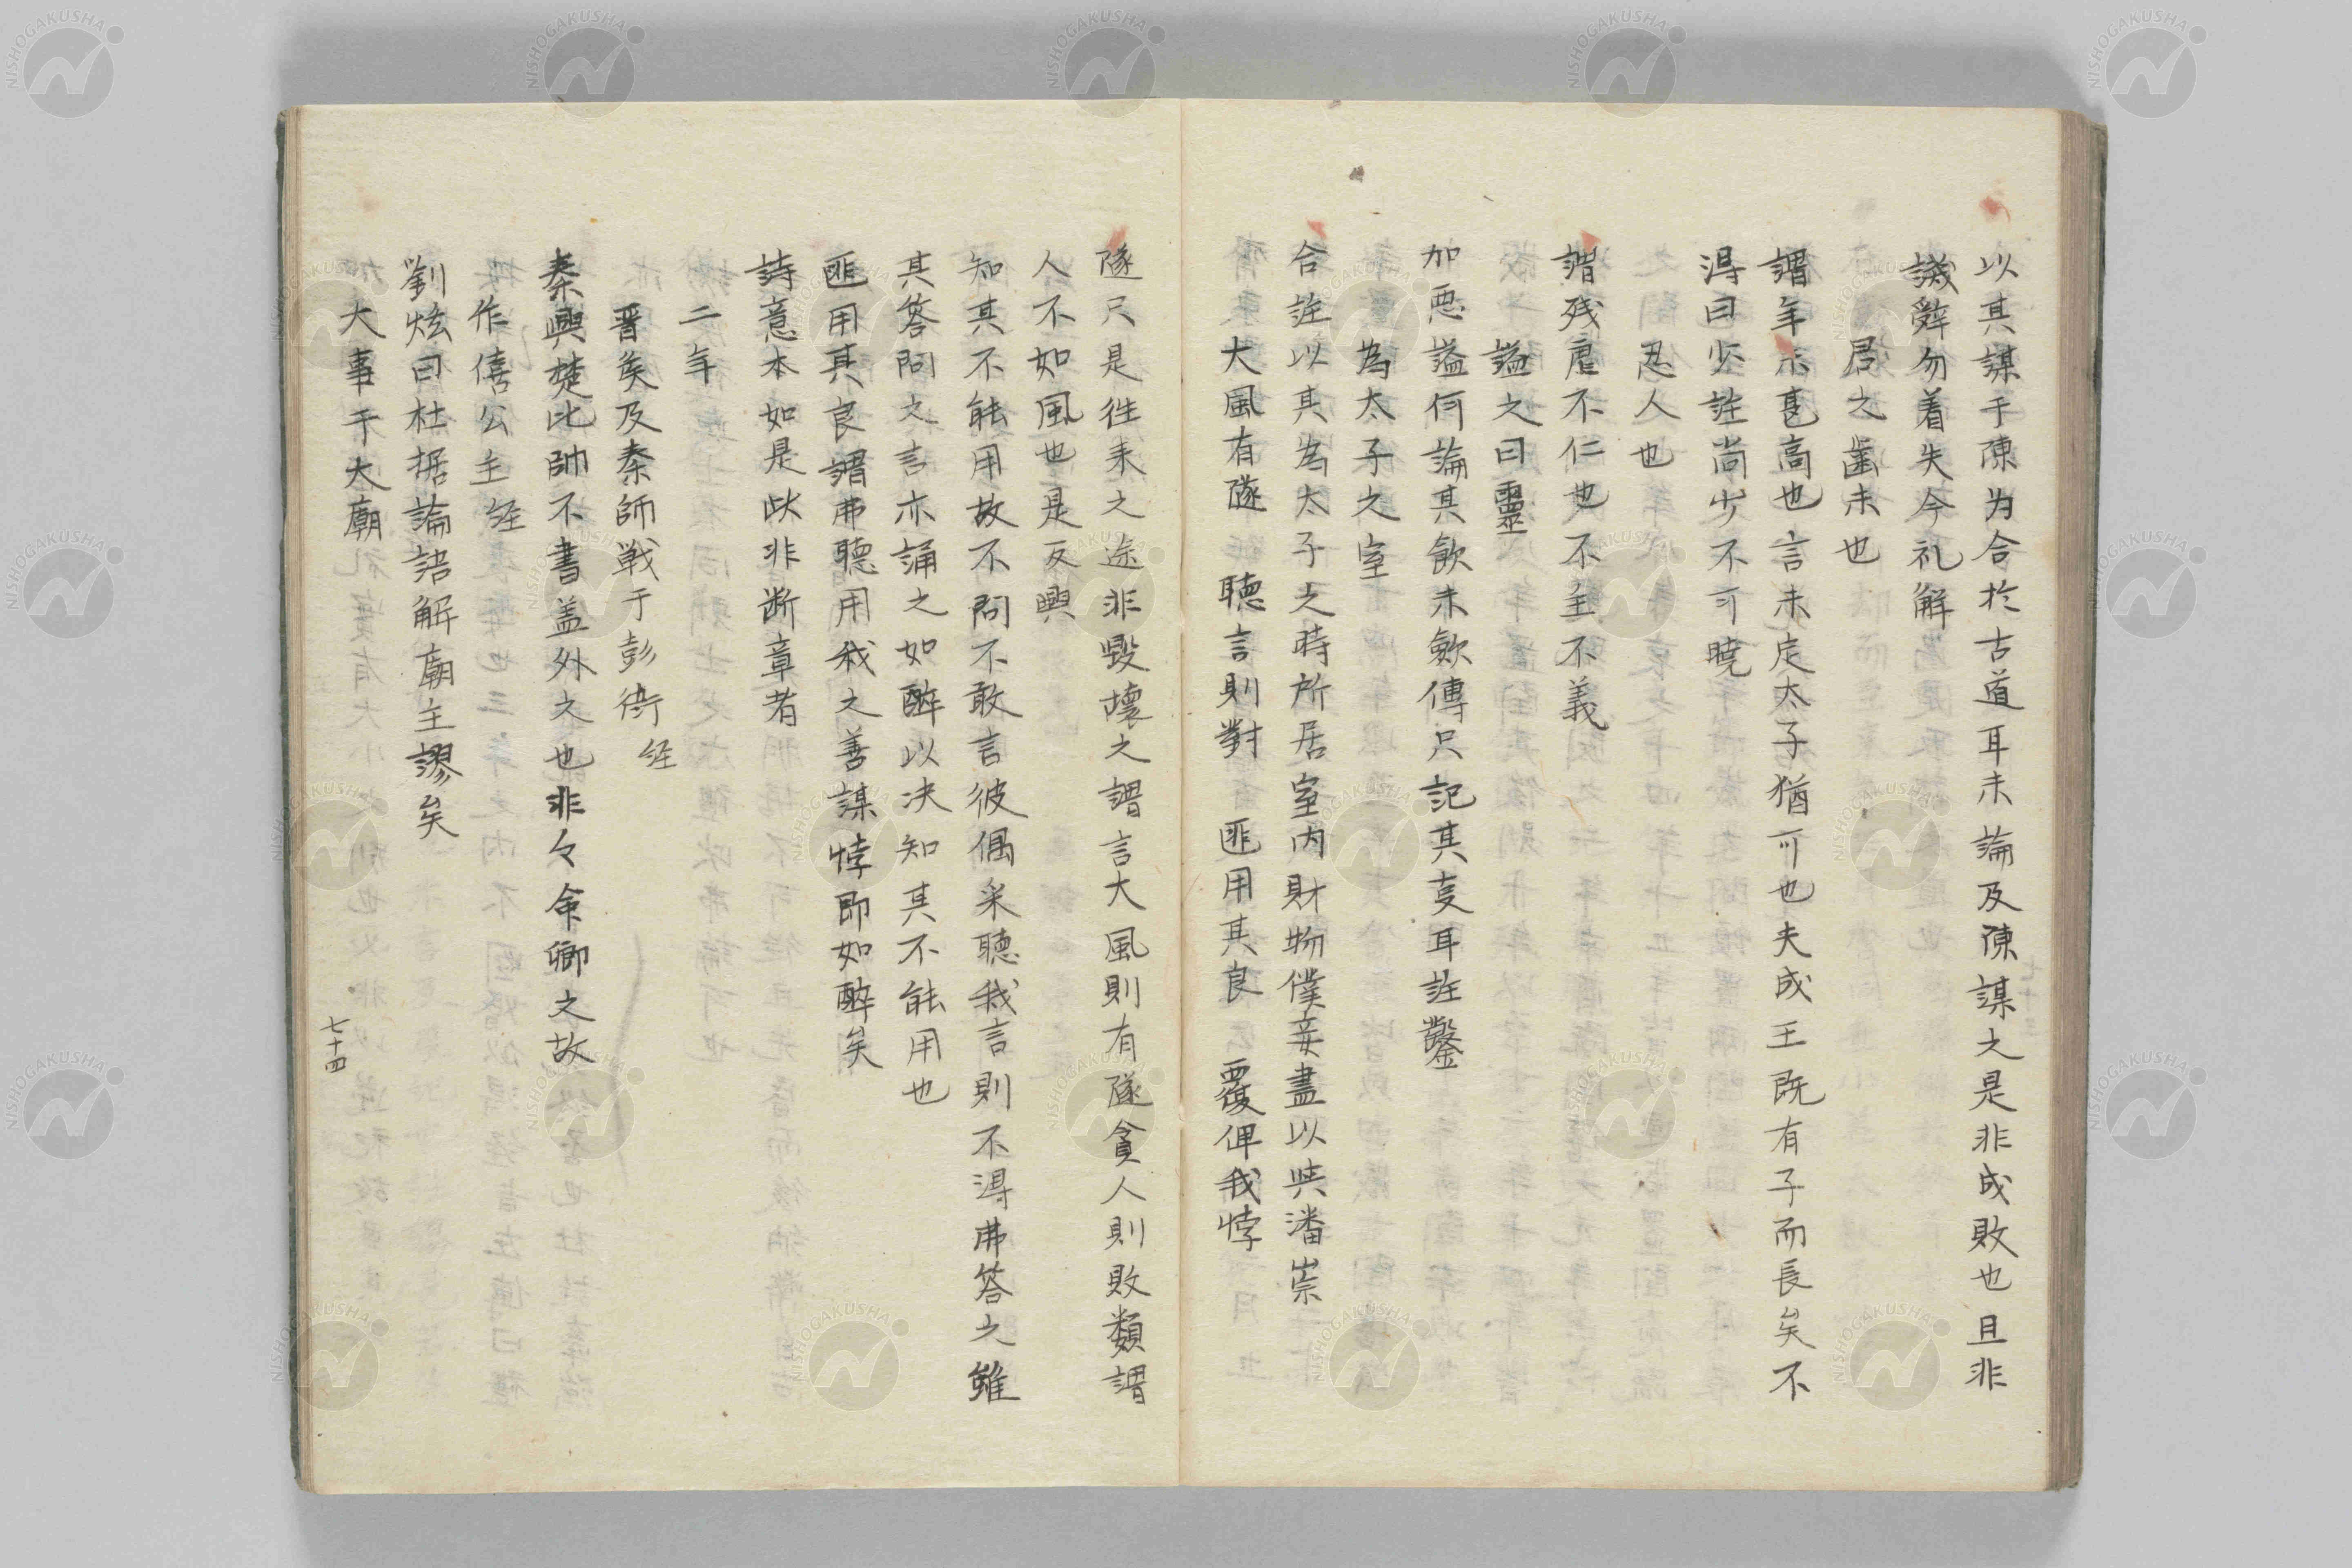 以其謀于陳为合於古道耳未論及陳謀之是非成敗也且非
議辤勿着失今礼解
君之齒未也
謂年未甚高也言未定太子猶可也夫成王既有子而長矣不
得曰少註尚少不可曉
忍人也
謂残虐不仁也不主不義
謚之曰靈
加惡謚何論其歛未歛傳只記其変耳註鑿
為太子之室
合註以其為太子之時所居室内財物僕妾盡以與潘崇
大風有隧 聴言則對 匪用其良 覆俾我悖
隧只是徃来之途非毀壊之謂言大風則有隧貪人則敗類謂
人不如風也是反興
知其不能用故不問不敢言彼偶采聴我言則不得弗答之雖
其答問之言亦誦之如醉以决知其不能用也
匪用其良謂弗聴用我之善謀悖即如醉矣
詩意本如是此非断章者
二年
晋矦及秦師戦于彭衙 経
秦與楚比帥不書盖外之也非々命卿之故
作僖公主 経
劉炫曰杜据論語解廟主謬矣
大事于大廟
七十四
NISHOGAKUSHA